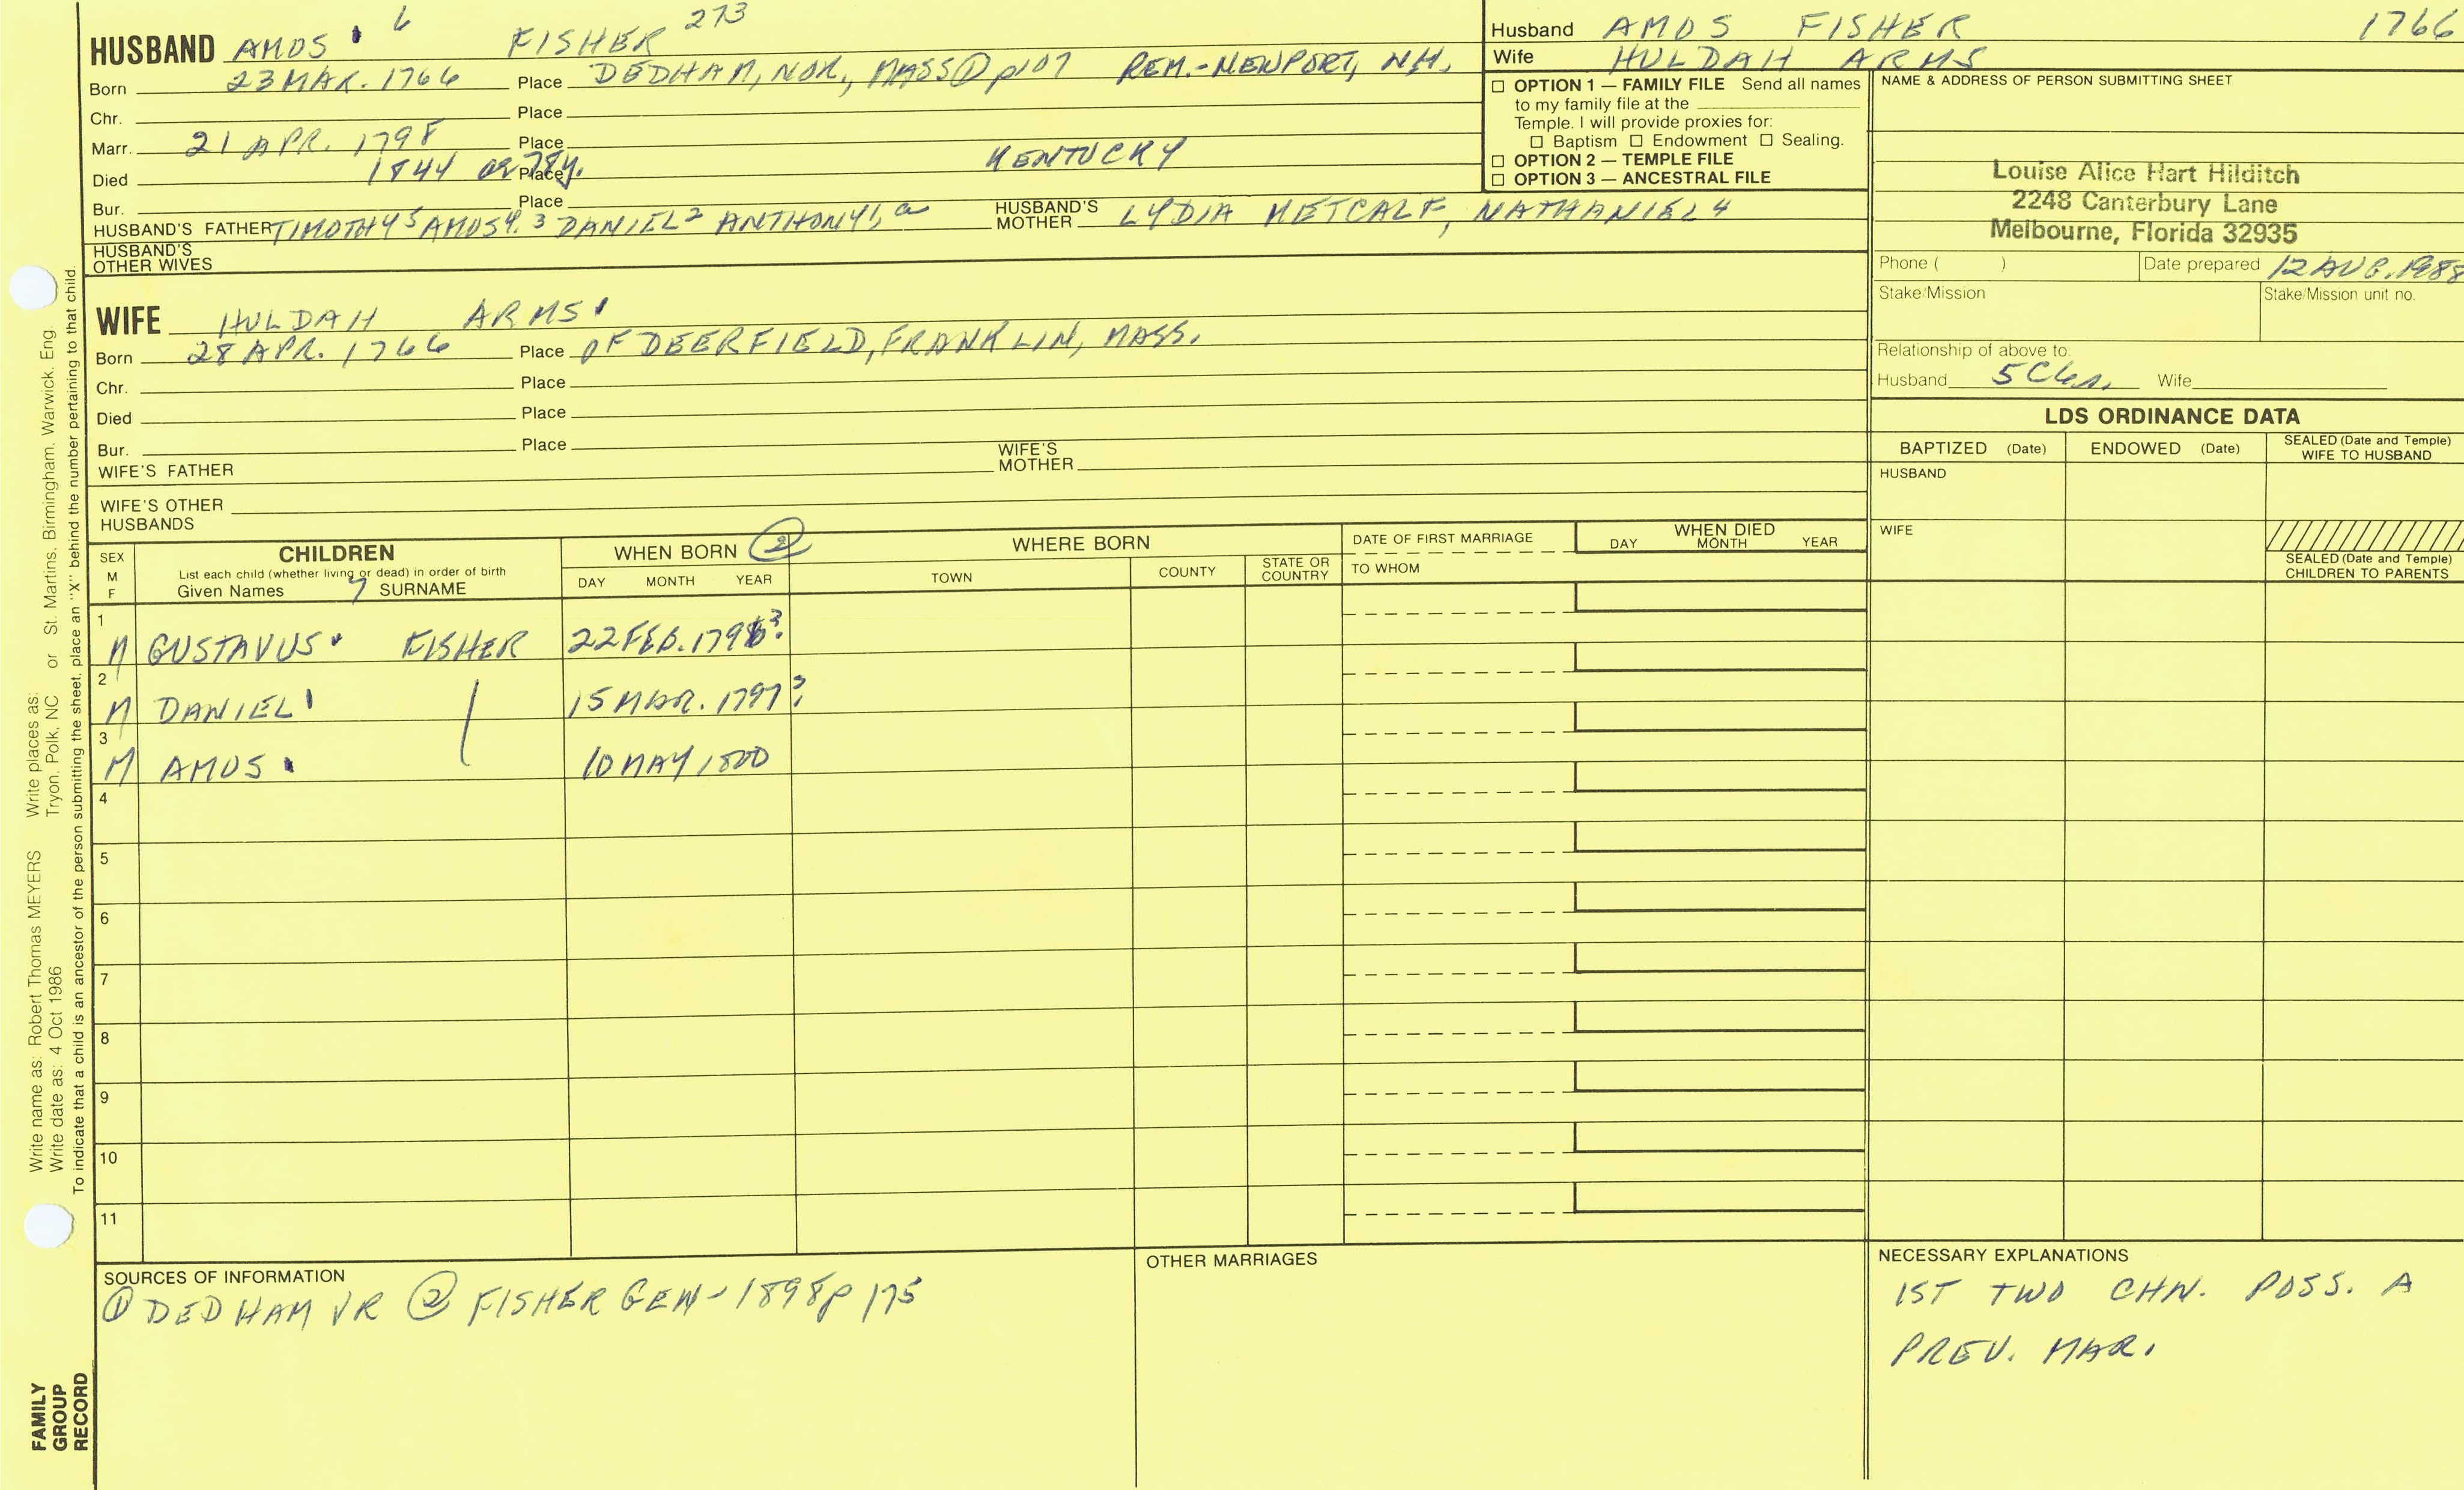 HUSBAND AMOS 6 FISHER 273
Born 23 MAR. 1766 Place DEDHAM, NOR., MASS ① p107 REM.-NEWPORT, NH.
Chr. Place
Marr. 21 APR. 1798 Place
Died 1844 Place KENTUCKY
Bur. Place
HUSBAND'S FATHER TIMOTHY5 AMOS4, 3 DANIEL2 ANTHONY1, a HUSBAND'S MOTHER LYDIA METCALF, NATHANIEL4
HUSBAND'S OTHER WIVES
WIFE HULDAH ARMS
Born 28 APR. 1766 Place OF DEERFIELD, FRANKLIN, MASS.
Chr. Place
Died Place
Bur. Place
WIFE'S FATHER WIFE'S MOTHER
WIFE'S OTHER HUSBANDS
Husband AMOS FISHER 1766
Wife HULDAH ARMS
☐ OPTION 1 — FAMILY FILE Send all names
to my family file at the
Temple. I will provide proxies for:
☐ Baptism ☐ Endowment ☐ Sealing.
☐ OPTION 2 — TEMPLE FILE
☐ OPTION 3 — ANCESTRAL FILE
NAME & ADDRESS OF PERSON SUBMITTING SHEET
Louise Alice Hart Hilditch
2248 Canterbury Lane
Melbourne, Florida 32935
Phone ( ) Date prepared 12 AUG. 1988
Stake/Mission Stake/Mission unit no.
Relationship of above to:
Husband 5C6r. Wife
LDS ORDINANCE DATA
BAPTIZED (Date) ENDOWED (Date) SEALED (Date and Temple) WIFE TO HUSBAND
HUSBAND
WIFE
SEALED (Date and Temple)
CHILDREN TO PARENTS
SEX M F CHILDREN WHEN BORN ② WHERE BORN DATE OF FIRST MARRIAGE WHEN DIED
List each child (whether living or dead) in order of birth
Given Names 7 SURNAME DAY MONTH YEAR TOWN COUNTY STATE OR COUNTRY TO WHOM DAY MONTH YEAR
1 M GUSTAVUS FISHER 22 FEB. 1796?
2 M DANIEL 15 MAR. 1797?
3 M AMOS 10 MAY 1800
4
5
6
7
8
9
10
11
SOURCES OF INFORMATION
① DEDHAM VR ② FISHER GEN - 1898 p 175
OTHER MARRIAGES
NECESSARY EXPLANATIONS
1ST TWO CHN. POSS. A
PREV. MAR.
Write name as: Robert Thomas MEYERS Write places as: St. Martins, Birmingham, Warwick, Eng.
Write date as: 4 Oct 1986 Tryon, Polk, NC or
To indicate that a child is an ancestor of the person submitting the sheet, place an "X" behind the number pertaining to that child.
FAMILY
GROUP
RECORD